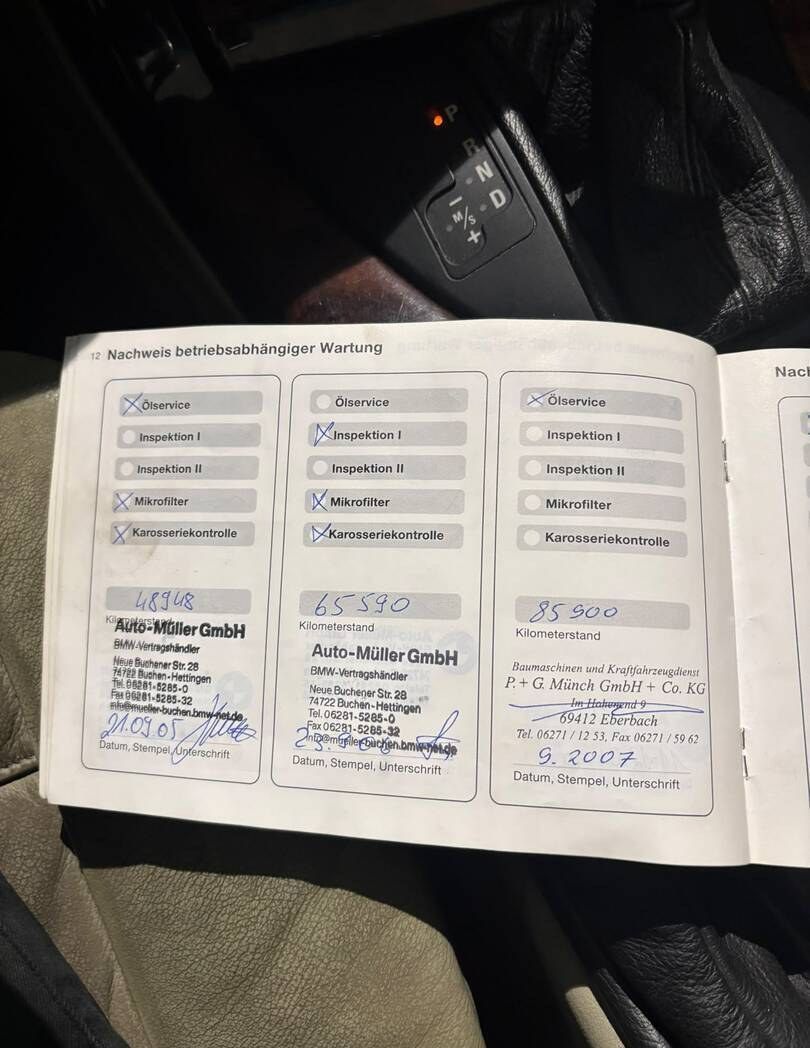 P
R
N
D
M/S
−
+
12 Nachweis betriebsabhängiger Wartung
Nach
Ölservice
Inspektion I
Inspektion II
Mikrofilter
Karosseriekontrolle
48948
Kilometerstand
Auto-Müller GmbH
BMW-Vertragshändler
Neue Buchener Str. 28
74722 Buchen-Hettingen
Tel. 06281-5285-0
Fax 06281-5285-32
info@mueller-buchen.bmw-net.de
21.09.05
Datum, Stempel, Unterschrift
Ölservice
Inspektion I
Inspektion II
Mikrofilter
Karosseriekontrolle
65590
Kilometerstand
Auto-Müller GmbH
BMW-Vertragshändler
Neue Buchener Str. 28
74722 Buchen-Hettingen
Tel. 06281-5285-0
Fax 06281-5285-32
info@mueller-buchen.bmw-net.de
Datum, Stempel, Unterschrift
Ölservice
Inspektion I
Inspektion II
Mikrofilter
Karosseriekontrolle
85900
Kilometerstand
Baumaschinen und Kraftfahrzeugdienst
P. + G. Münch GmbH + Co. KG
Im Hohenend 9
69412 Eberbach
Tel. 06271 / 12 53, Fax 06271 / 59 62
9. 2007
Datum, Stempel, Unterschrift